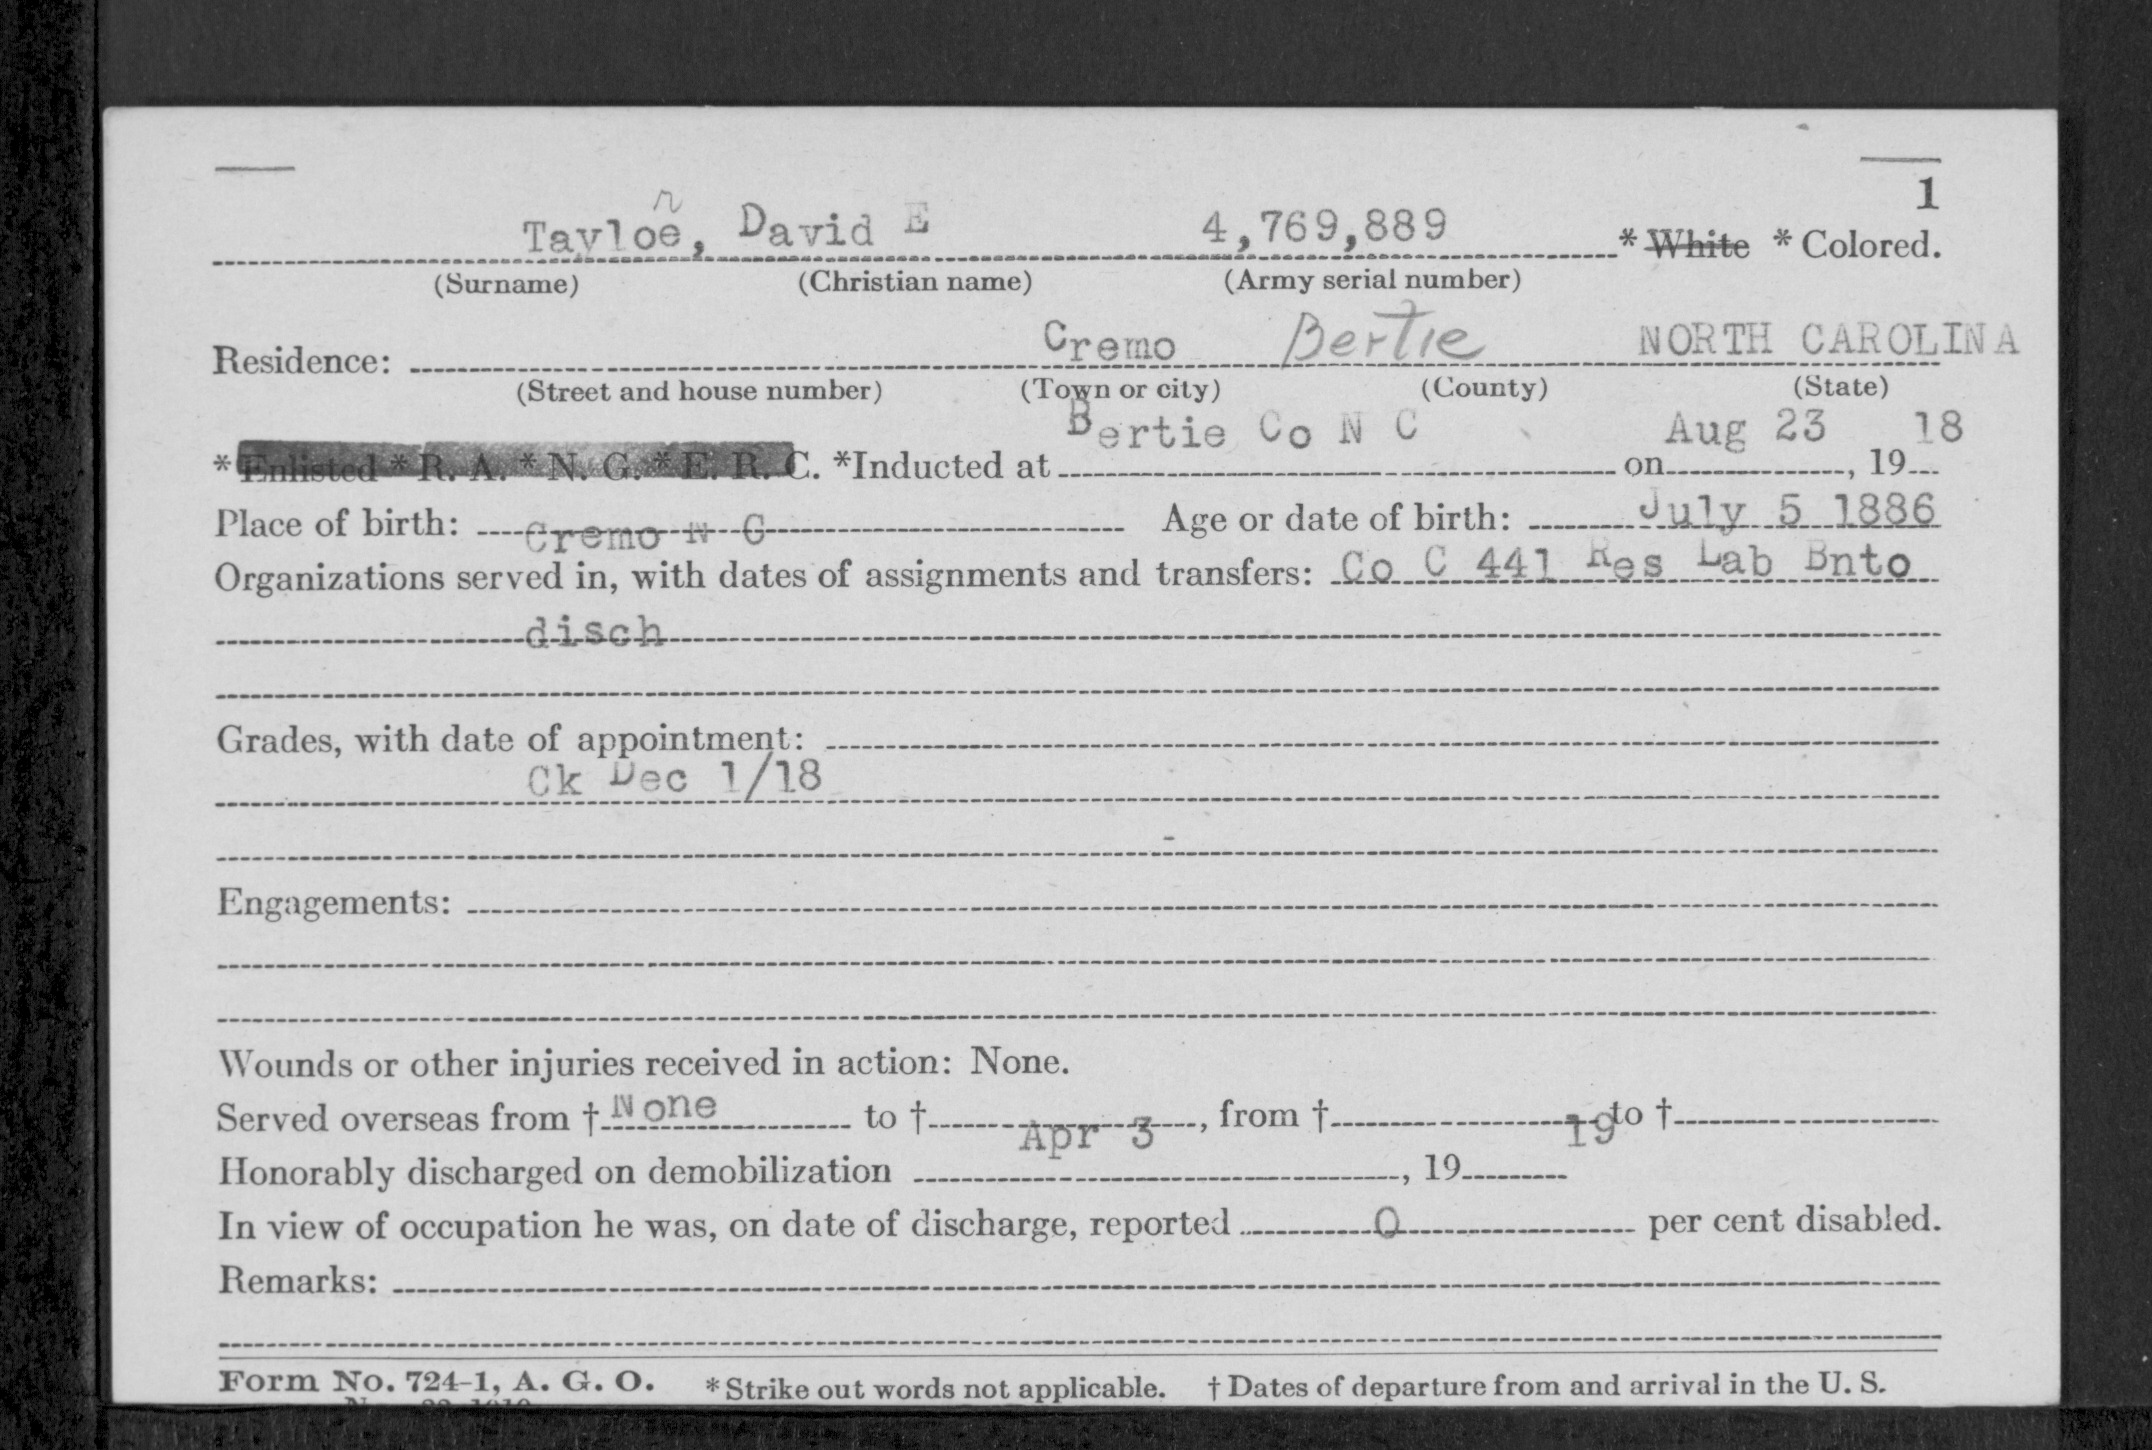 1
r
Tayloe, David E 4,769,889 * White * Colored.
(Surname) (Christian name) (Army serial number)
Residence: Cremo Bertie NORTH CAROLINA
(Street and house number) (Town or city) (County) (State)
Bertie Co N C Aug 23 18
* Enlisted * R. A. * N. G. * E. R. C. *Inducted at on , 19
Place of birth: Cremo N C Age or date of birth: July 5 1886
Organizations served in, with dates of assignments and transfers: Co C 441 Res Lab Bnto
disch
Grades, with date of appointment:
Ck Dec 1/18
Engagements:
Wounds or other injuries received in action: None.
Served overseas from † None to † , from † to †
Apr 3 19
Honorably discharged on demobilization , 19
In view of occupation he was, on date of discharge, reported 0 per cent disabled.
Remarks:
Form No. 724-1, A. G. O. * Strike out words not applicable. † Dates of departure from and arrival in the U. S.